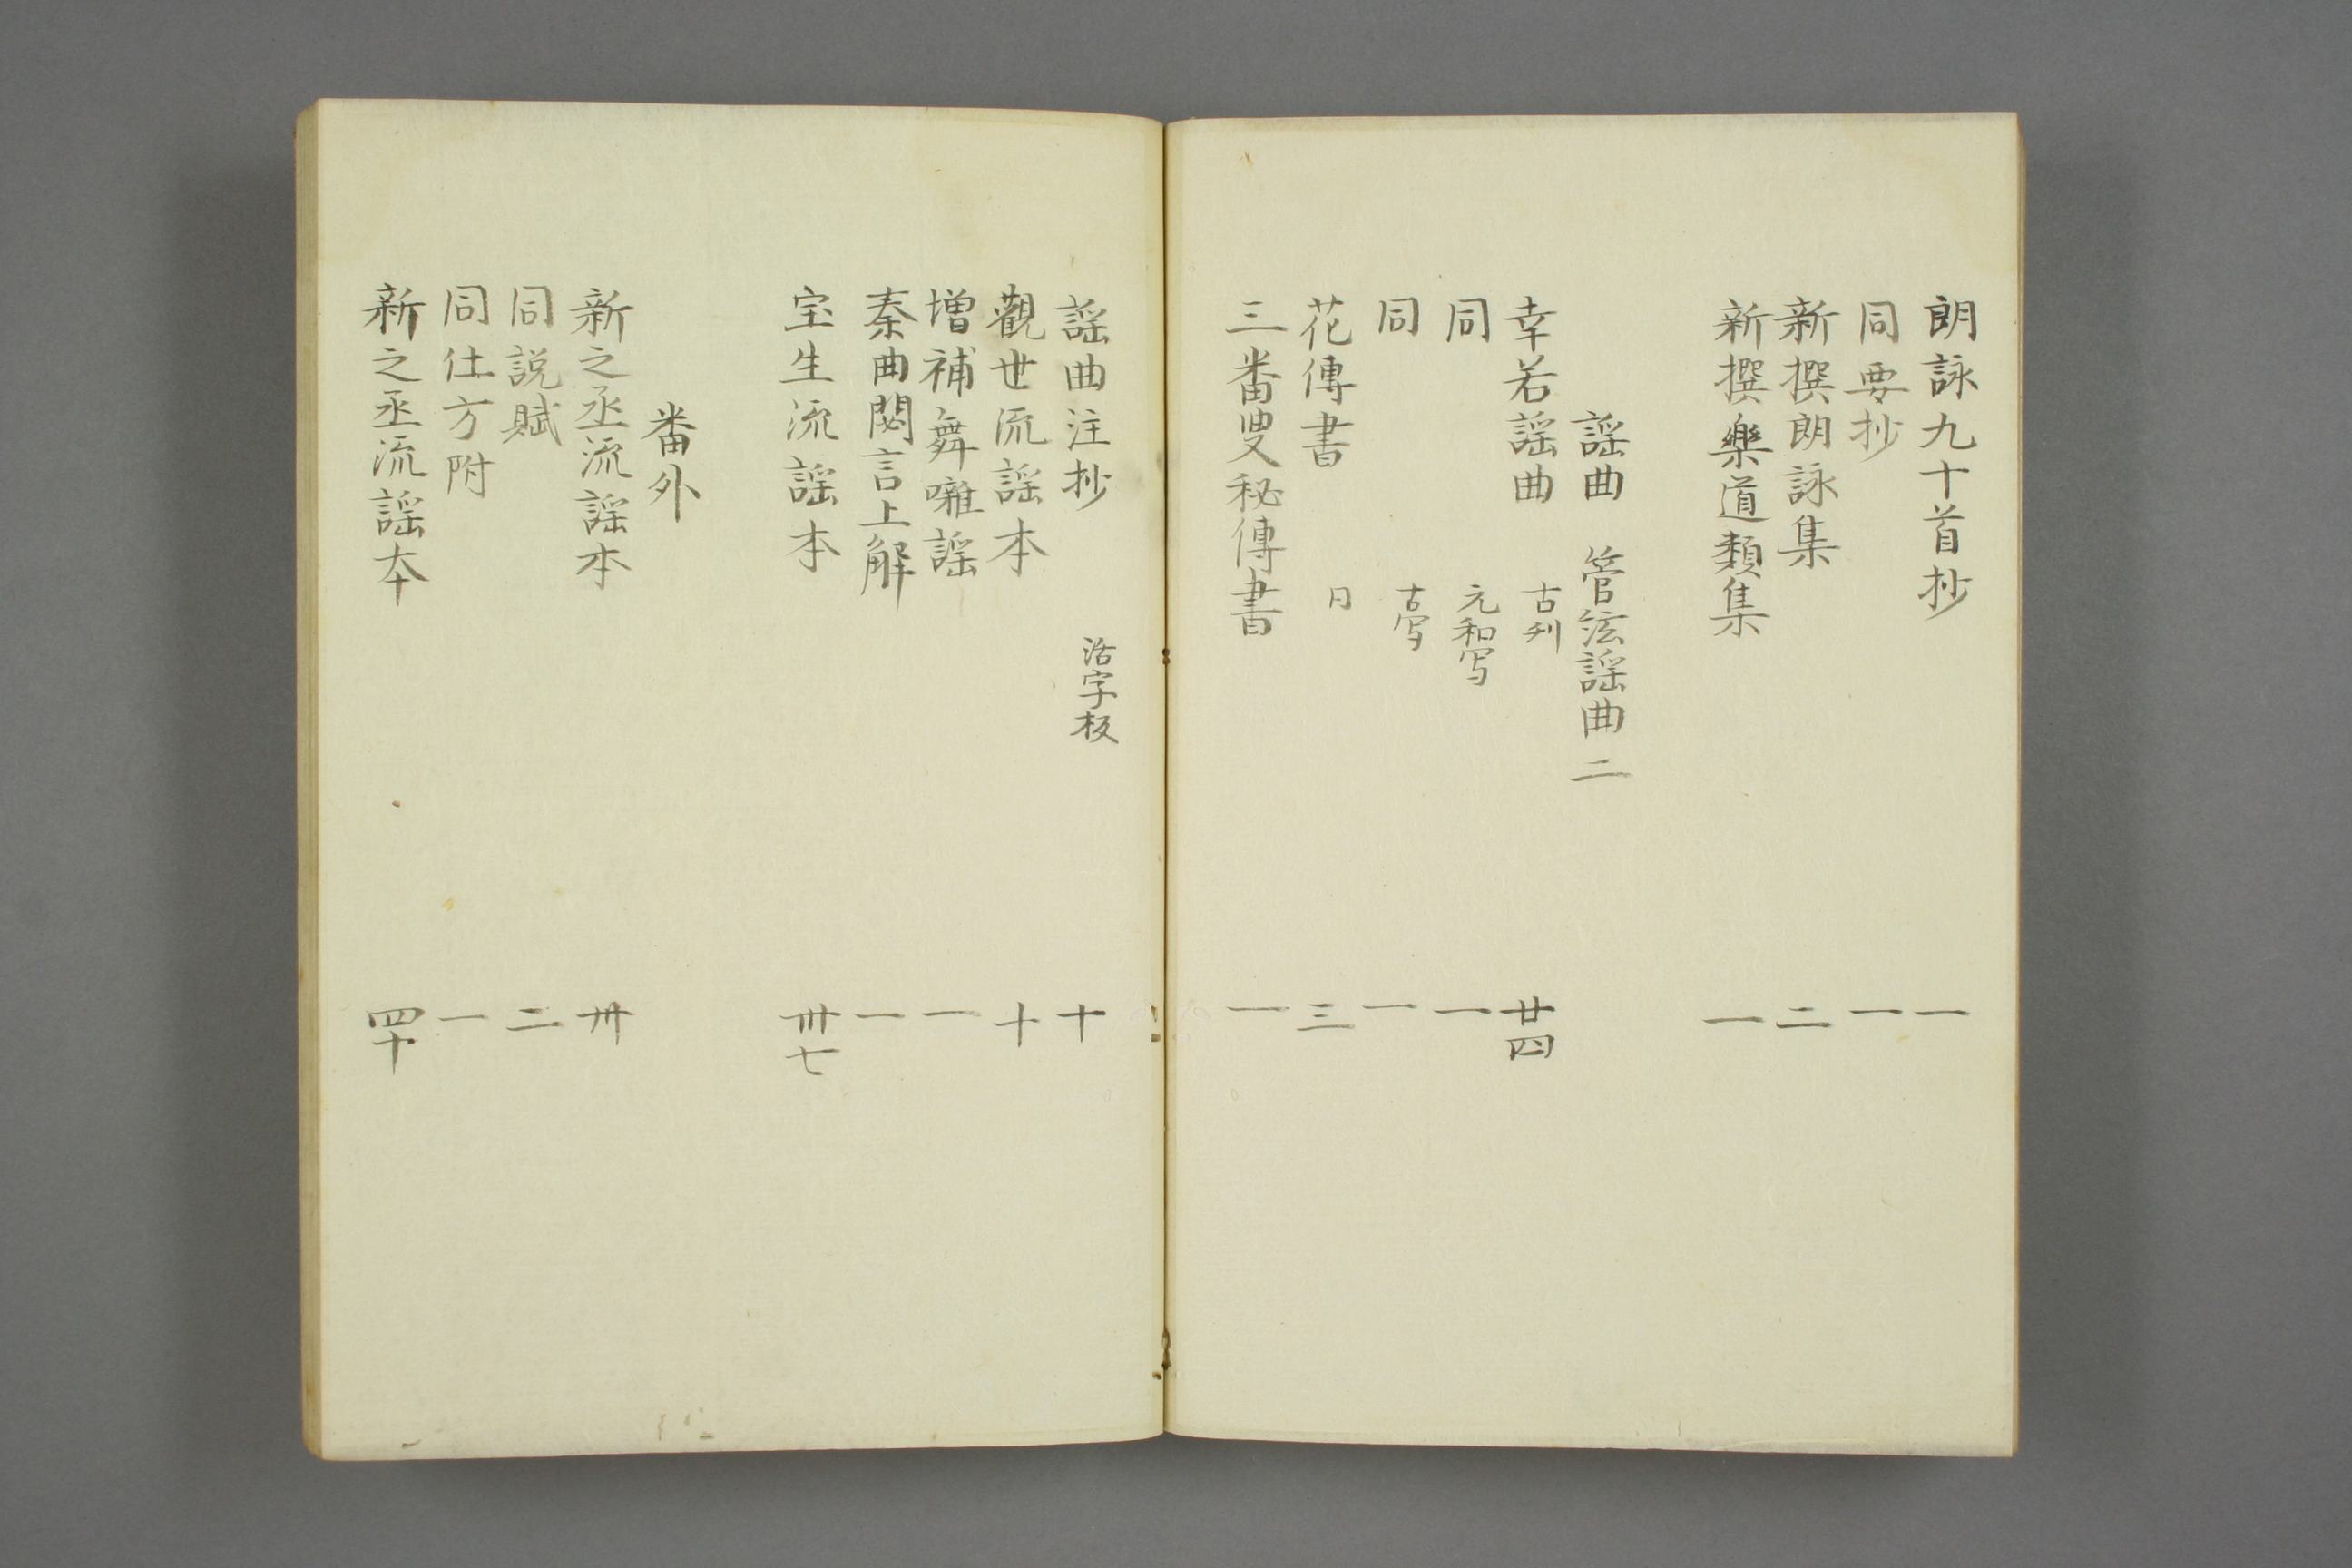 朗詠九十首抄 一
同要抄 一
新撰朗詠集 二
新撰楽道類集 一
謡曲 管絃謡曲二
幸若謡曲 古刋 廿四
同 元和写 一
同 古写 一
花傳書 日 三
三番叟秘傳書 一
謡曲注抄 活字板 十
觀世流謡本 十
増補舞囃謡 一
秦曲閟言上解 一
宝生流謡本 卅七
番外
新之丞流謡本 卅
同説賦 二
同仕方附 一
新之丞流謡本 四十